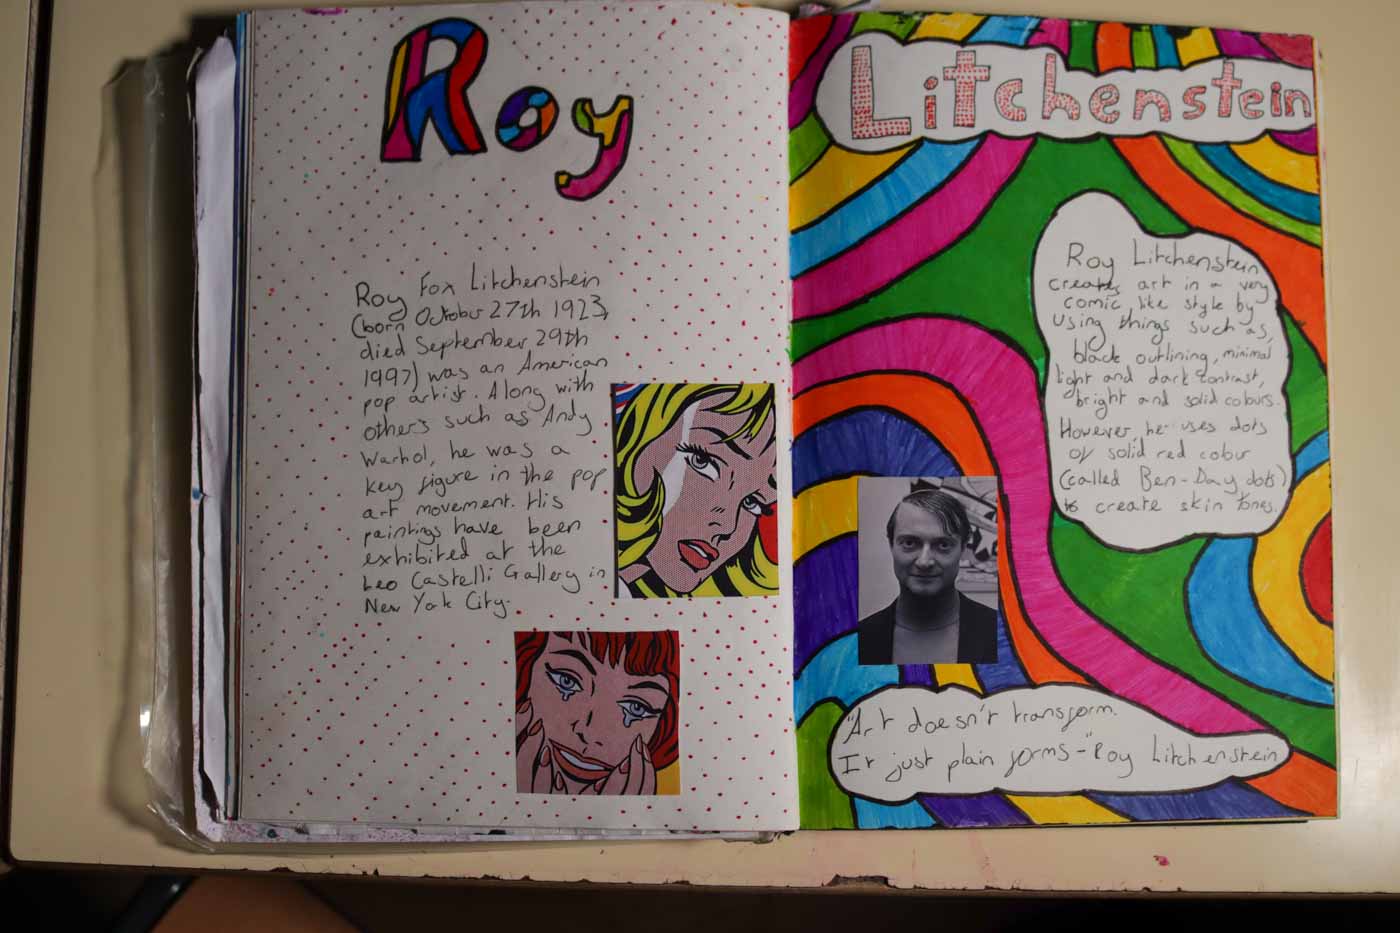 Roy
Roy Fox Litchenstein
(born October 27th 1923,
died September 29th
1997) was an American
pop artist. Along with
others such as Andy
Warhol, he was a
key figure in the pop
art movement. His
paintings have been
exhibited at the
Leo Castelli Gallery in
New York City.
Litchenstein
Roy Litchenstein
creates art in a very
comic like style by
using things such as,
black outlining, minimal
light and dark contrast,
bright and solid colours.
However he uses dots
of solid red colour
(called Ben-Day dots)
to create skin tones.
"Art doesn't transform.
It just plain forms-" Roy Litchenstein